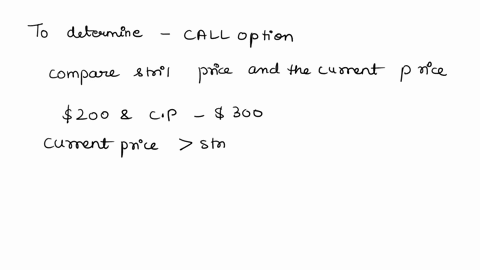 To determine - CALL option
compare stril price and the current price
$200 & C.P - $300
current price > str